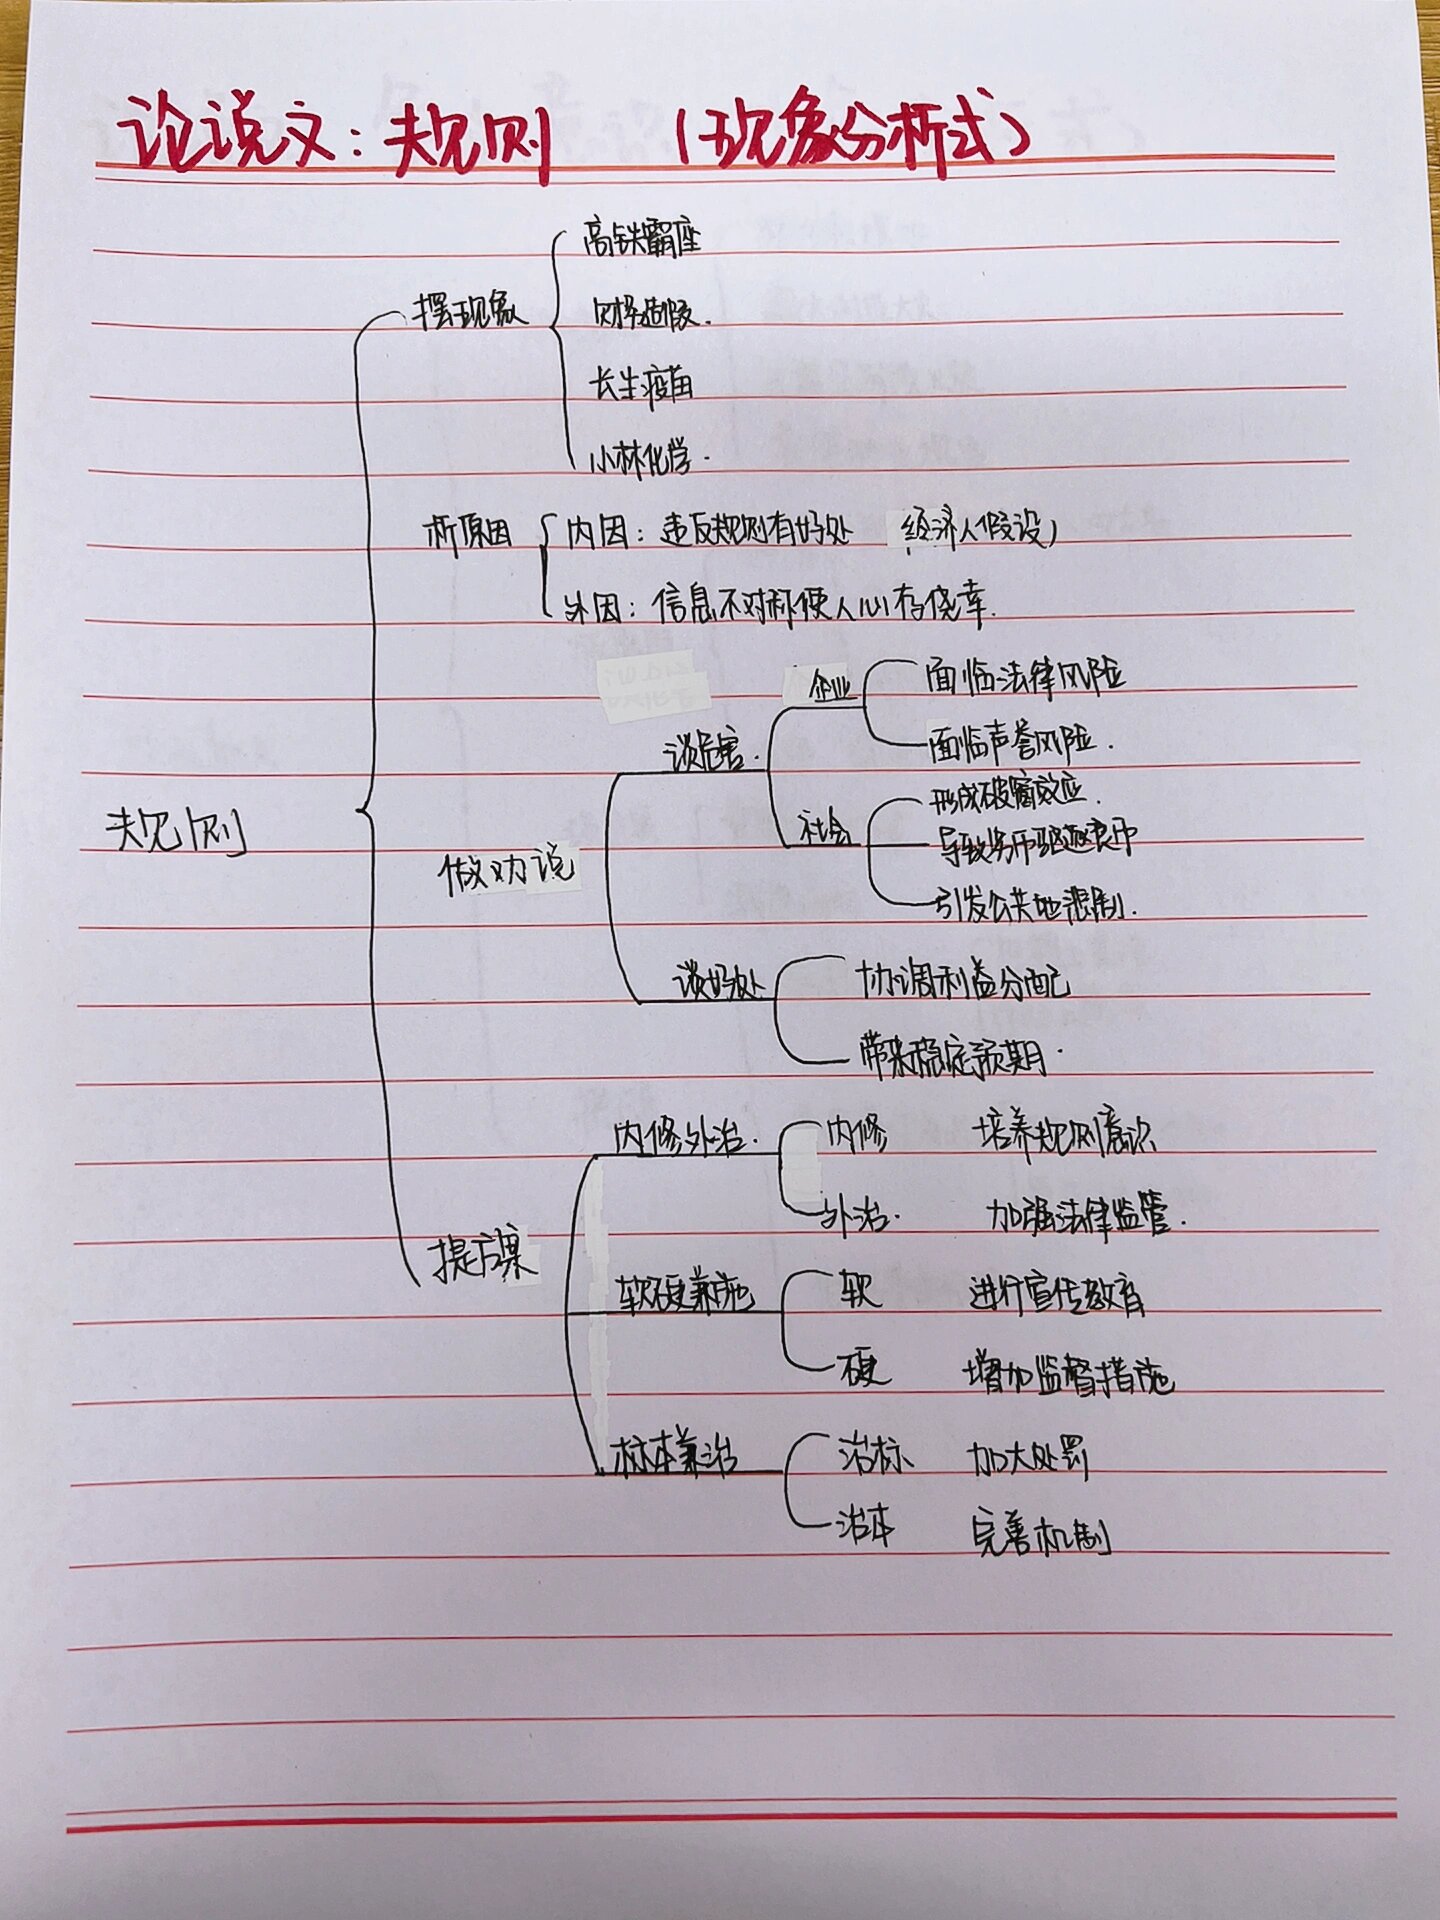 论说文：规则 （现象分析式）
高铁霸座
摆现象
财务造假.
长生疫苗
小林化学.
析原因
内因：违反规则有好处 经济人假设）
外因：信息不对称使人心存侥幸.
企业
面临法律风险
谈危害.
面临声誉风险.
形成破窗效应.
社会
导致劣币驱逐良币
规则
做劝说
引发公共地悲剧.
谈好处
协调利益分配
带来稳定预期.
内修外治.
内修 培养规则意识
外治. 加强法律监管.
提方案
软硬兼施
软 进行宣传教育
硬 增加监督措施
标本兼治
治标 加大处罚
治本 完善机制